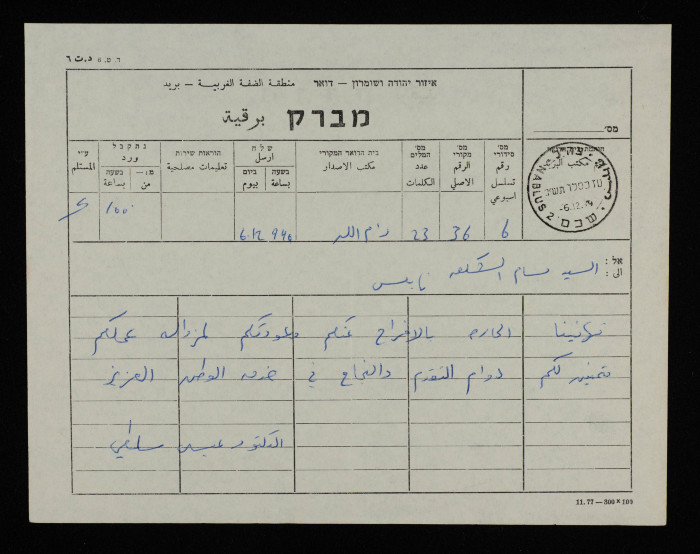 ד.ט. 6 د.ت ٦
איזור יהודה ושומרון — דואר منطقة الضفة الغربية — بريد
מברק برقية
מס׳
מס׳ סידורי رقم تسلسل اسبوعي
מס׳ מקורי الرقم الاصلي
מס׳ המלים عدد الكلمات
בית הדואר המקורי مكتب الاصدار
שלח ارسل
ביום بيوم
בשעה بساعة
הוראות שירות تعليمات مصلحية
נתקבל ورد
בשעה بساعة
מ— من
ע״י المستلم
6 36 23 رام الله 6.12 940 1000
NABLUS 2 שכם
-6.12.79
אל: الى:
السيد بسام الشكعه نابلس
تهانينا الحاره بالافراج عنكم وعودتكم لمزاولة عملكم
متمنين لكم دوام التقدم والنجاح في خدمة الوطن العزيز
الدكتور عيسى سلطي
11.77 — 300 × 100